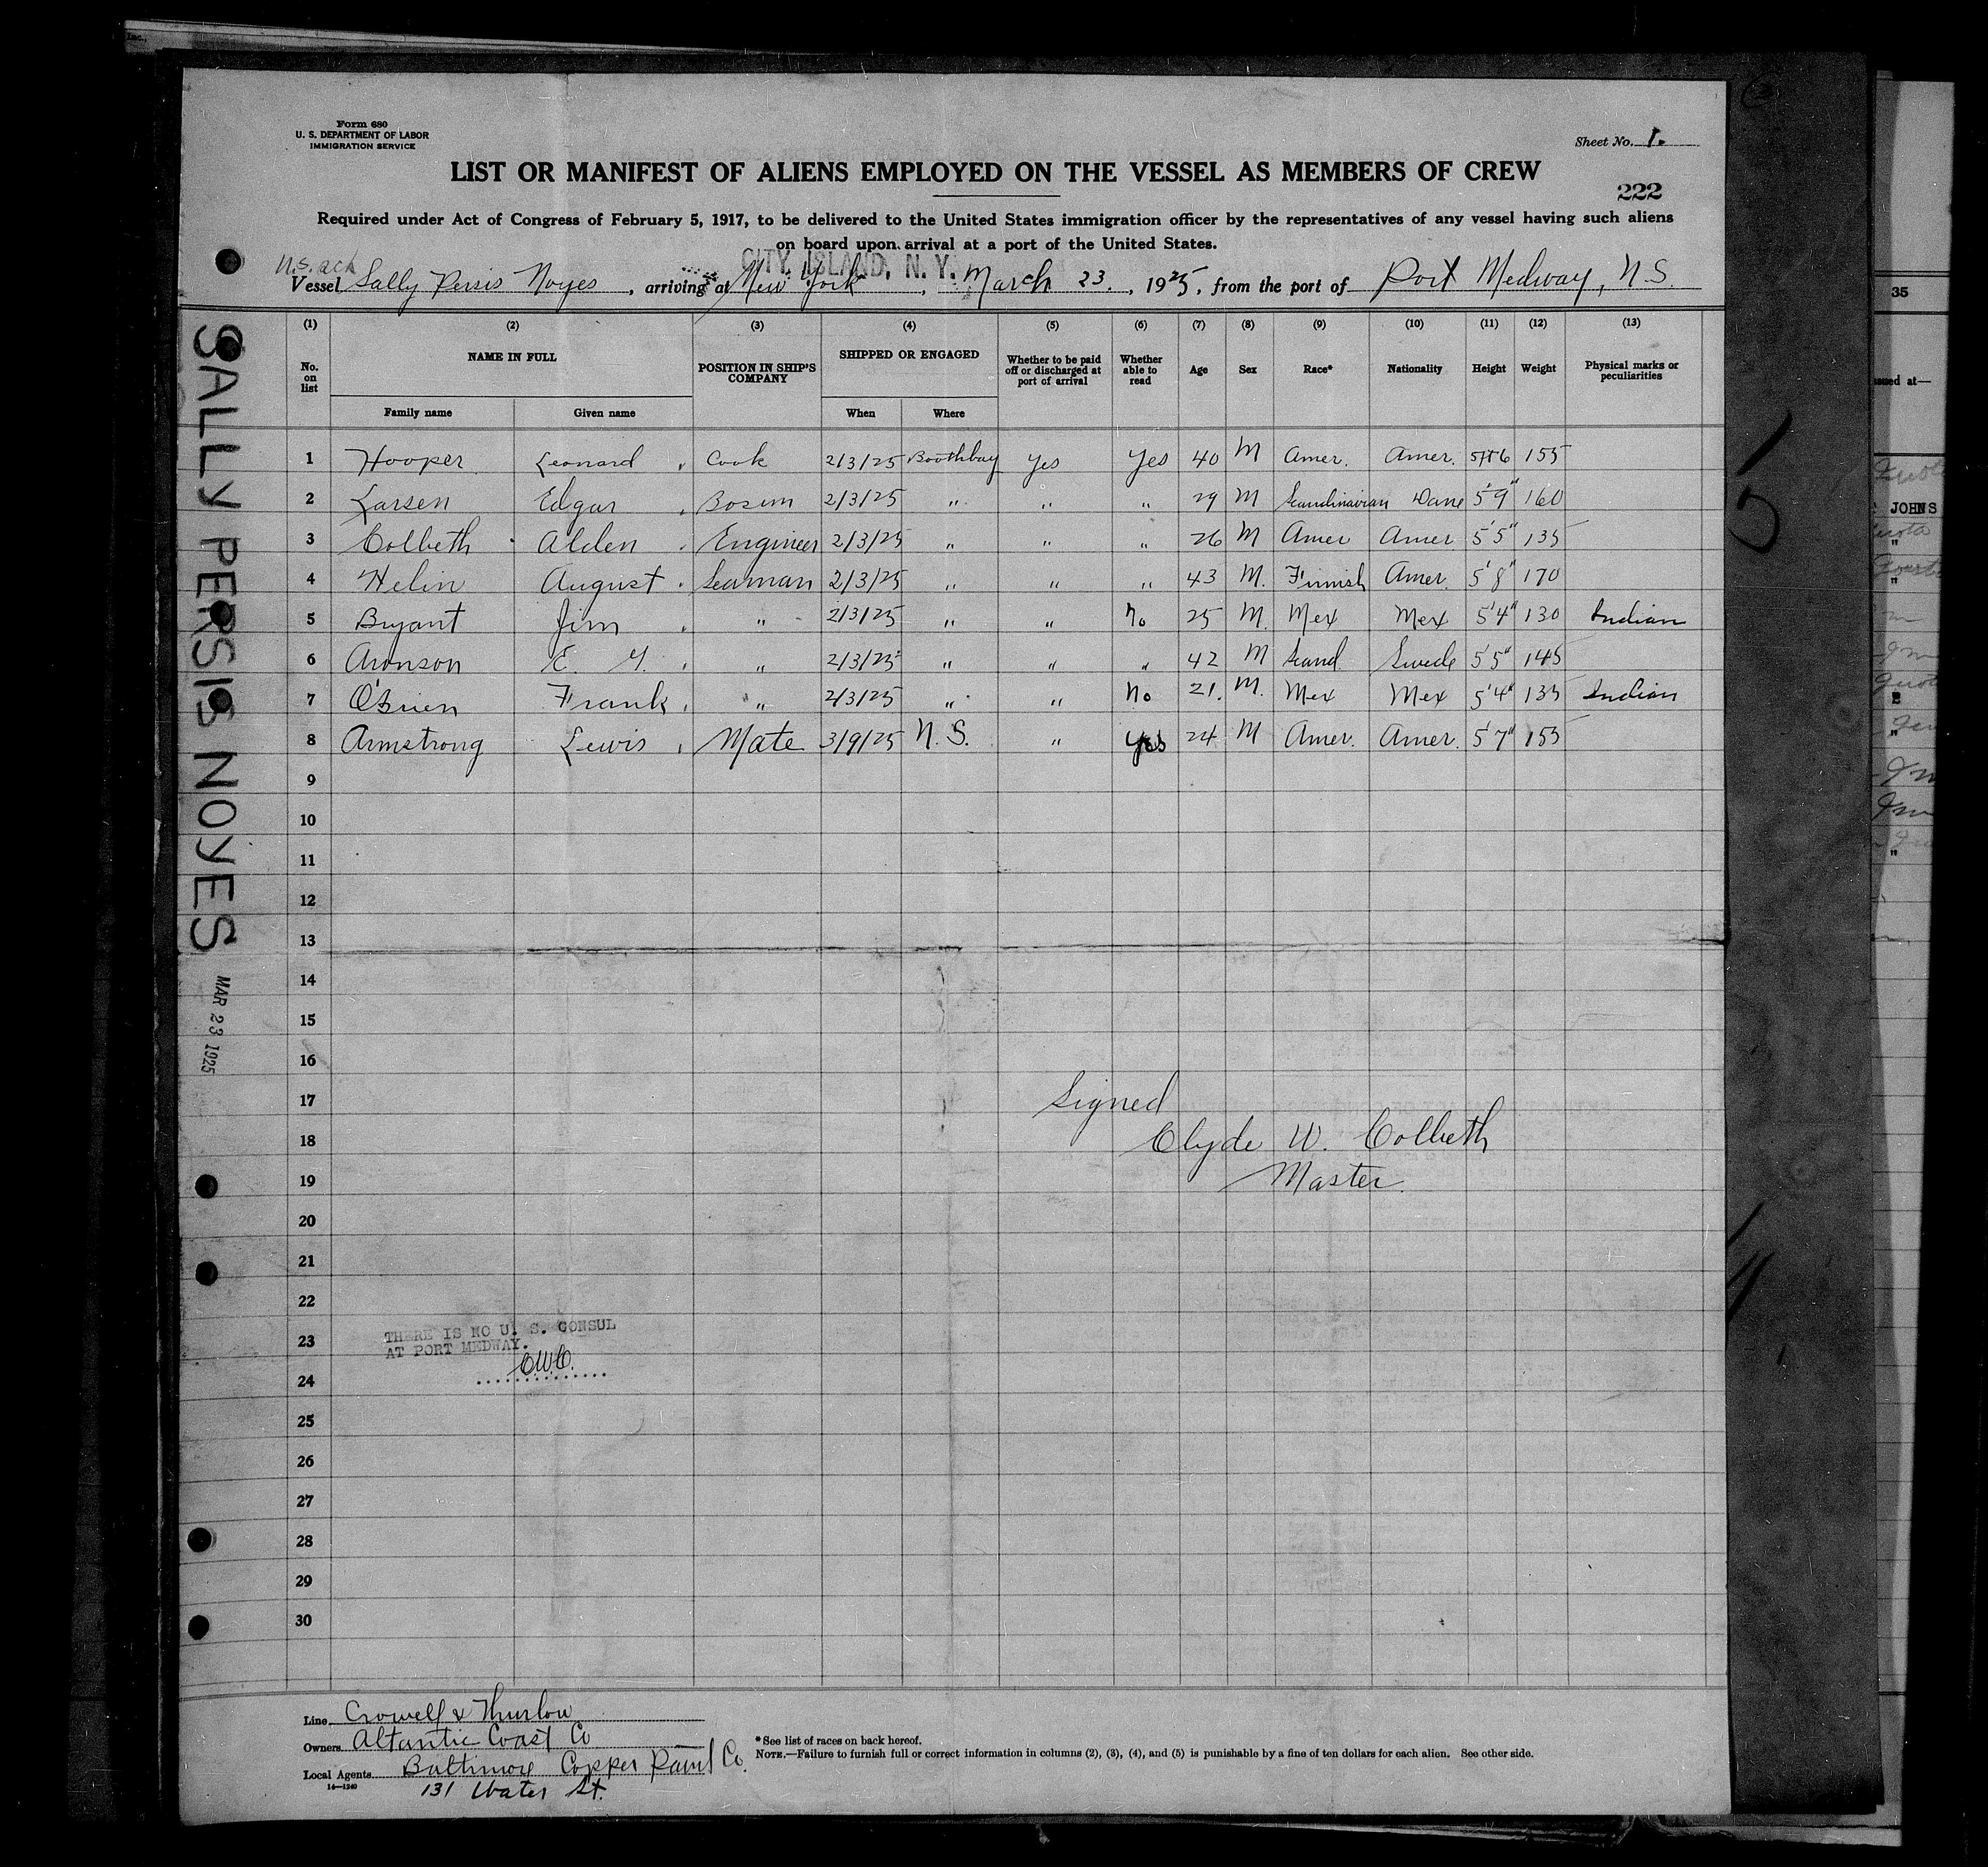 Form 680
U. S. DEPARTMENT OF LABOR
IMMIGRATION SERVICE
Sheet No. 1.
LIST OR MANIFEST OF ALIENS EMPLOYED ON THE VESSEL AS MEMBERS OF CREW
222
Required under Act of Congress of February 5, 1917, to be delivered to the United States immigration officer by the representatives of any vessel having such aliens
on board upon arrival at a port of the United States.
CITY ISLAND, N. Y.
Vessel Sally Persis Noyes, arriving at New York, March 23., 1925, from the port of Port Medway, N.S.
(1) (2) (3) (4) (5) (6) (7) (8) (9) (10) (11) (12) (13)
No. on list NAME IN FULL POSITION IN SHIP'S COMPANY SHIPPED OR ENGAGED Whether to be paid off or discharged at port of arrival Whether able to read Age Sex Race* Nationality Height Weight Physical marks or peculiarities
Family name Given name When Where
1 Hooper Leonard Cook 2/3/25 Boothbay Yes Yes 40 M Amer. Amer. 5ft 6 155
2 Larsen Edgar Bosun 2/3/25 " " " 29 M Scandinavian Dane 5'9" 160
3 Colbeth Alden Engineer 2/3/25 " " " 26 M Amer Amer 5'5" 135
4 Helin August Seaman 2/3/25 " " " 43 M. Finnish Amer. 5'8" 170
5 Bryant Jim " 2/3/25 " " No 25 M. Mex Mex 5'4" 130 Indian
6 Aronson E. " 2/3/25 " " " 42 M Scand. Swede 5'5" 145
7 O'Brien Frank " 2/3/25 " " No 21. M. Mex Mex 5'4" 135 Indian
8 Armstrong Lewis Mate 3/9/25 N.S. " Yes 24 M Amer. Amer. 5'7" 155
9
10
11
12
13
14
15
16
17
18
19
20
21
22
23
24
25
26
27
28
29
30
Signed
Clyde W. Colbeth
Master.
THERE IS NO U. S. CONSUL
AT PORT MEDWAY.
C.W.C.
Line Crowell & Thurlow
Owners Altantic Coast Co
Local Agents Baltimore Copper Paint Co.
14—1240
131 Water St.
*See list of races on back hereof.
NOTE.—Failure to furnish full or correct information in columns (2), (3), (4), and (5) is punishable by a fine of ten dollars for each alien. See other side.
SALLY PERSIS NOYES
MAR 23 1925
35
JOHNS